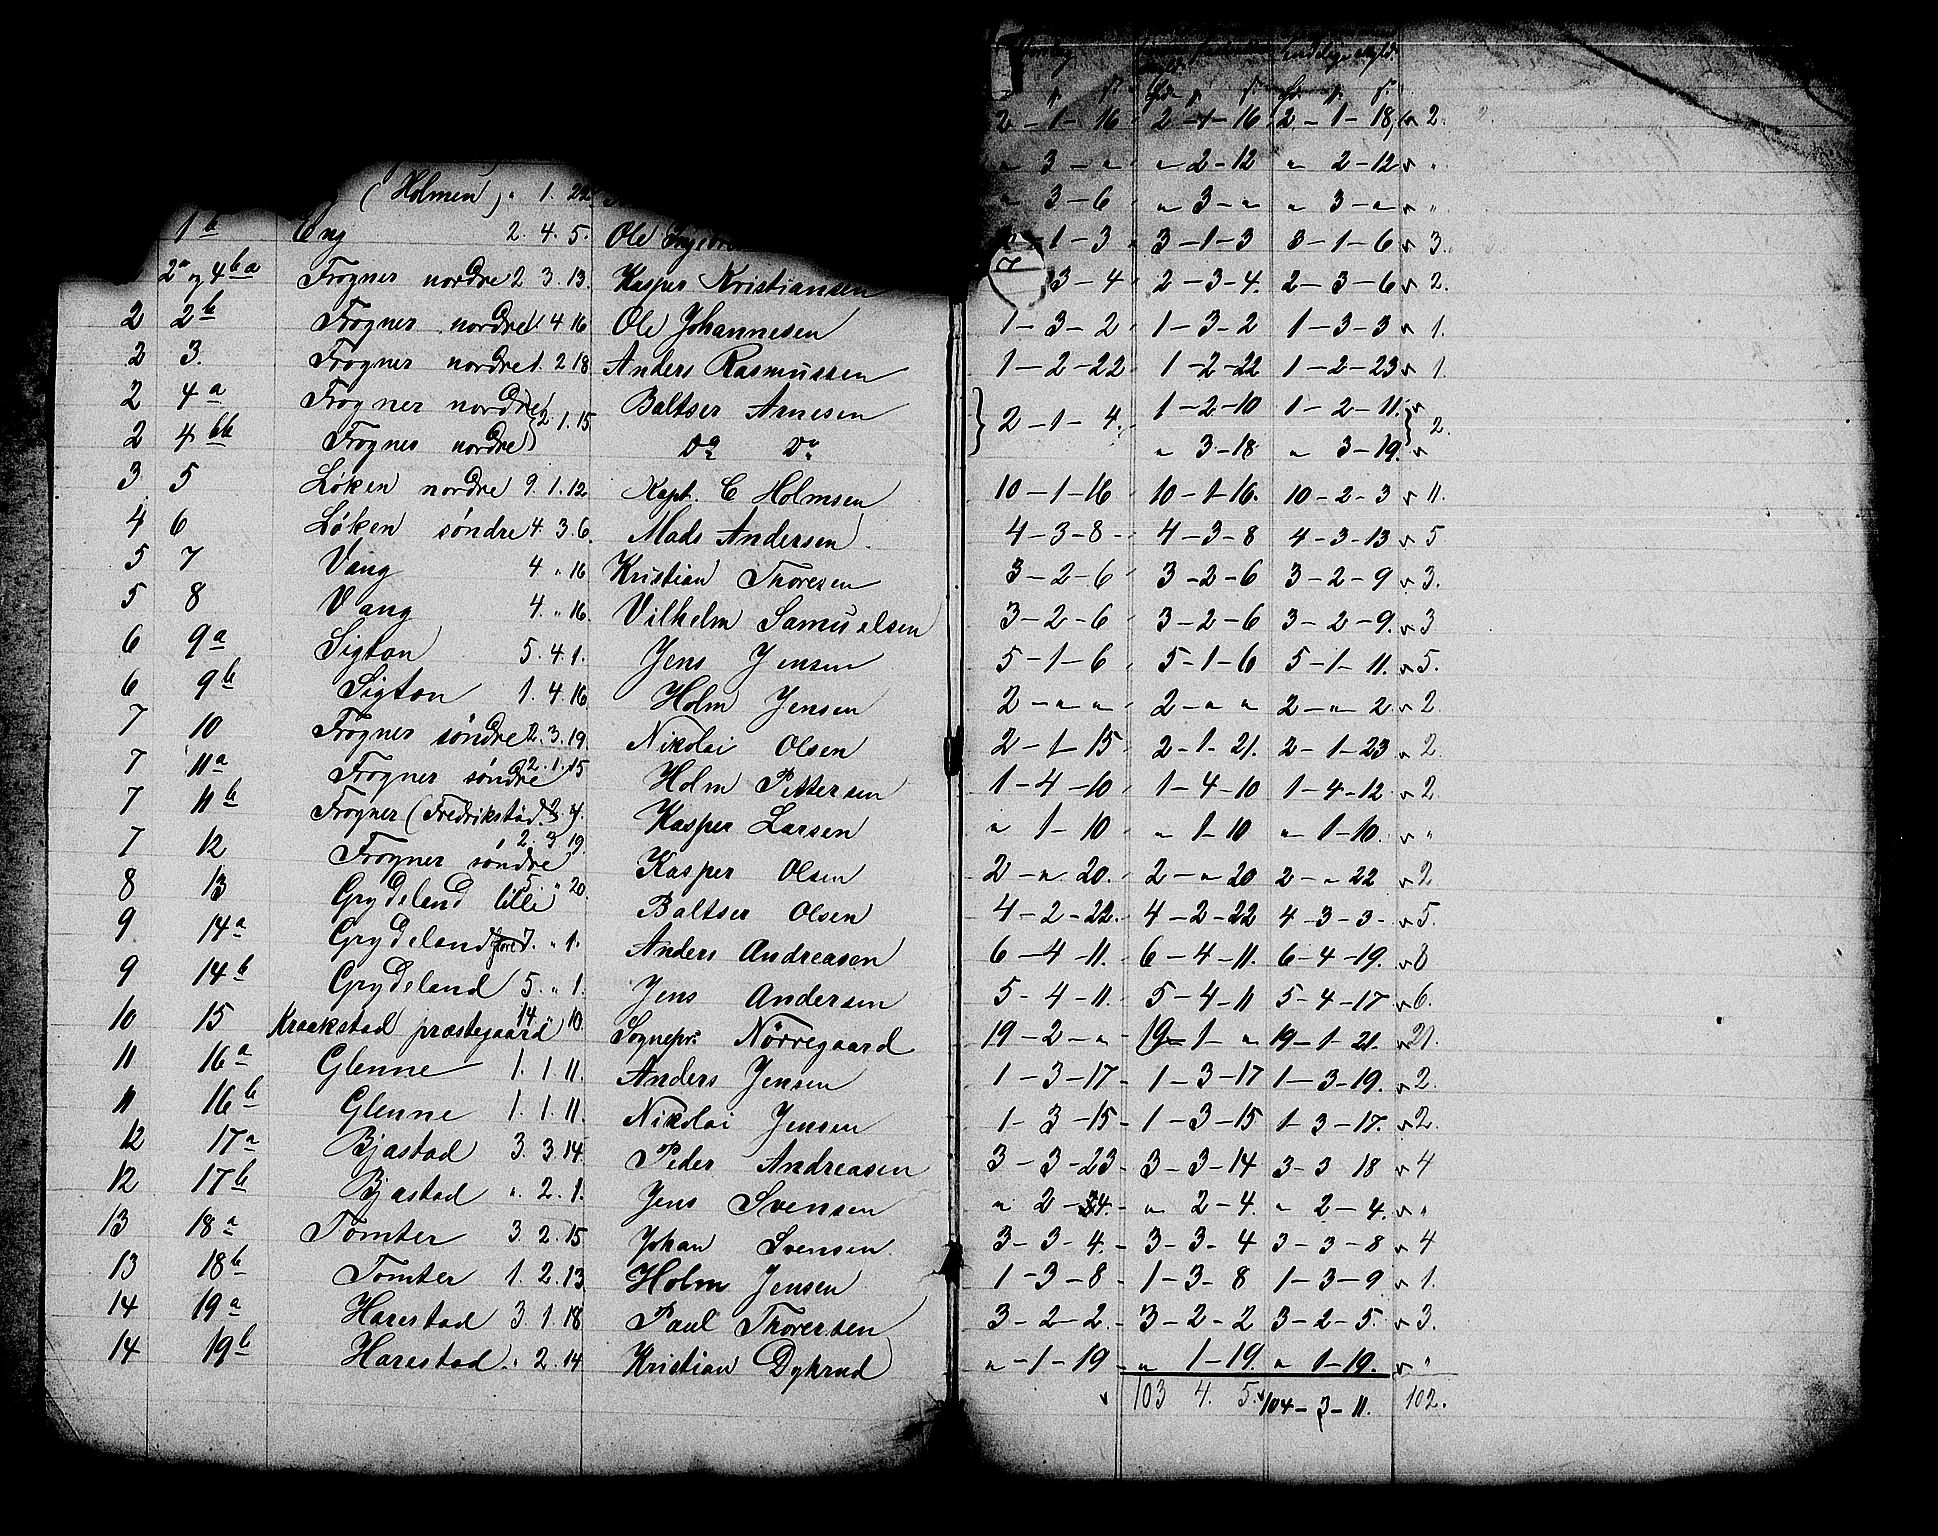 (Holmen) " 1. 22
1 b Eng 2. 4. 5. Ole
2 a og 4 ba Frogner nordre 2 3. 13. Kasper Kristiansen
2 2 b Frogner nordre 1. 4 16 Ole Johannesen
2 3. Frogner nordre 1. 2 18 Anders Rasmussen
2 4 a Frogner nordre } 2. 1. 15 Baltser Arnesen
2 4 bb Frogner nordre Do Do
3 5 Løken nordre 9. 1. 12 Kapt. C Holmsen
4 6 Løken søndre 4. 3 6. Mads Andersen
5 7 Vang 4 " 16 Kristian Thoresen
5 8 Vang 4. " 16. Vilhelm Samuelsen
6 9 a Sigton 5. 4. 1. Jens Jensen
6 9 b Sigton 1. 4. 16 Holm Jensen
7 10 Frogner søndre 2. 3. 19. Nikolai Olsen
7 11 a Frogner søndre 2. 1. 15 Holm Pettersen
7 11 b Frogner (Fredrikstad Kasper Larsen
7 12 Frogner søndre 2. 3 19. Kasper Olsen
8 13 Grydeland lille 5. " 20. Baltser Olsen
9 14 a Grydeland 7. " 1. Anders Andreasen
9 14 b Grydeland 5. " 1. Jens Andersen
10 15 Kraakstad præstegaard 14 " 10. Sognepr: Nørregaard
11 16 a Glenne 1. 1 11. Anders Jensen
11 16 b Glenne 1. 1. 11. Nikolai Jensen
12 17 a Bjastad 3. 3. 14. Peder Andreasen
12 17 b Bjastad ". 2. 1. Jens Svensen
13 18 a Tomter 3. 2. 15 Johan Svensen
13 18 b Tomter 1. 2. 13. Holm Jensen
14 19 a Harestad 3 1. 18 Paul Thoresen
14 19 b Harestad ". 2. 14 Kristian Dykrud
2 - 1 - 16 2 - 1 - 16 2 - 1 - 18, 2.
" 3 - " " 2 - 12 " 2 - 12 "
" 3 - 6 " 3 - " " 3 - " "
1 - 3 3 - 1 - 3 3 - 1 - 6 3.
3 - 4 2 - 3 - 4. 2 - 3 - 6 2.
1 - 3 - 2 1 - 3 - 2 1 - 3 - 3 1.
1 - 2 - 22 1 - 2 - 22 1 - 2 - 23 1.
} 2 - 1 - 4. 1 - 2 - 10 1 - 2 - 11. } 2.
" 3 - 18 " 3 - 19.
10 - 1 - 16 10 - 1 - 16. 10 - 2 - 3 11.
4 - 3 - 8 - 4 - 3 - 8 4 - 3 - 13 5
3 - 2 - 6 3 - 2 - 6 3 - 2 - 9 3.
3 - 2 - 6 3 - 2 - 6 3 - 2 - 9. 3
5 - 1 - 6 5 - 1 - 6 5 - 1 - 11. 5.
2 - " " 2 - " " 2 - " 2 2
2 - 1 - 15 2 - 1 - 21. 2 - 1 - 23 2
1 - 4 - 10 1 - 4 - 10 1 - 4 - 12 2
" 1 - 10 " 1 - 10 " 1 - 10. "
2 - " 20. 2 - " 20 2 - " 22 2
4 - 2 - 22. 4 - 2 - 22 4 - 3 - 3 - 5.
6 - 4 - 11. 6 - 4 - 11. 6 - 4 - 19. 8
5 - 4 - 11. 5 - 4 - 11 5 - 4 - 17 6.
19 - 2 - " - 19 - 1 - " 19 - 1 - 21. 21.
1 - 3 - 17 - 1 - 3 - 17 1 - 3 - 19. 2.
1 - 3 - 15 - 1 - 3 - 15 1 - 3 - 17. 2.
3 - 3 - 23 - 3 - 3 - 14 3 - 3 18 4
" 2 - - " 2 - 4. " 2 - 4. "
3 - 3 - 4. - 3 - 3 - 4 3 - 3 - 8 4
1 - 3 - 8 - 1 - 3 - 8 1 - 3 - 9 1.
3 - 2 - 2. - 3 - 2 - 2 3 - 2 - 5. 3.
" - 1 - 19 - " 1 - 19. " 1 - 19. "
103 4. 5. 104 - 3 - 11. 102.